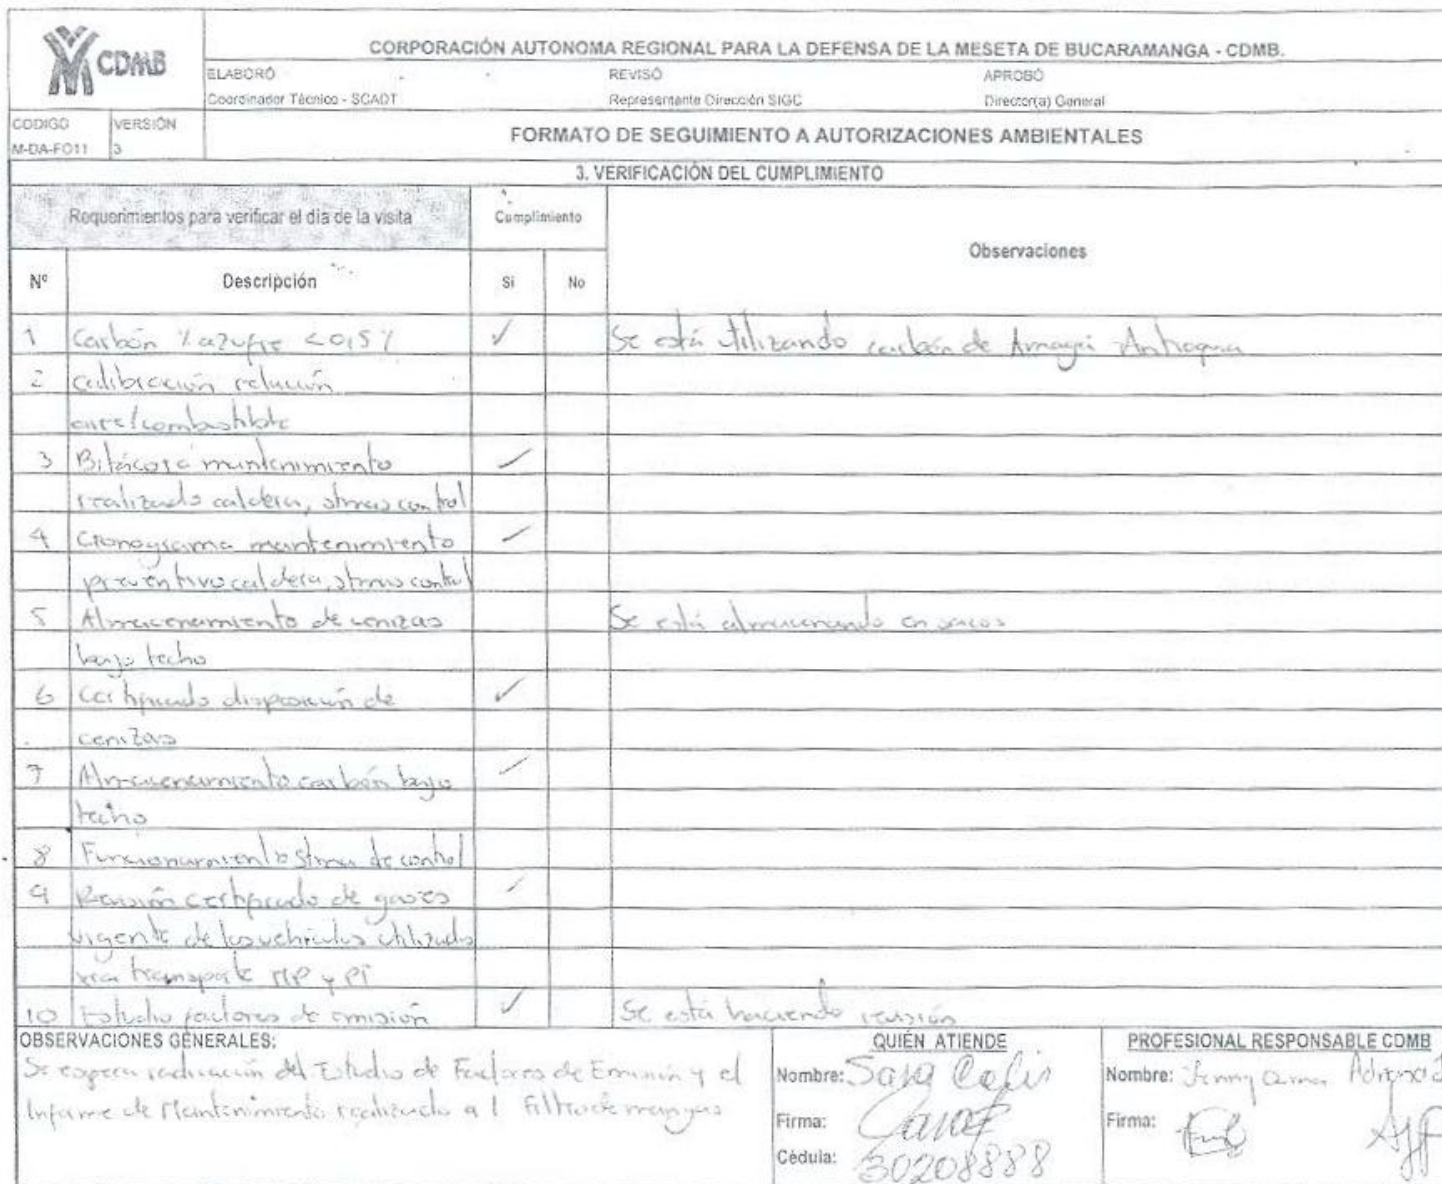 CDMB
CORPORACIÓN AUTONOMA REGIONAL PARA LA DEFENSA DE LA MESETA DE BUCARAMANGA - CDMB.
ELABORÓ REVISÓ APROBÓ
Coordinador Técnico - SCADT Representante Dirección SIGC Director(a) General
CODIGO VERSIÓN
M-DA-FO11 3
FORMATO DE SEGUIMIENTO A AUTORIZACIONES AMBIENTALES
3. VERIFICACIÓN DEL CUMPLIMIENTO
Requerimientos para verificar el día de la visita Cumplimiento Observaciones
Nº Descripción Si No
1 Carbón % azufre <0,5% ✓ Se está utilizando carbón de Amagá Antioquia
2 Calibración relación
aire/combustible
3 Bitácora mantenimiento ✓
realizado caldera, stmas control
4 Cronograma mantenimiento ✓
preventivo caldera, stmas control
5 Almacenamiento de cenizas Se está almacenando en sacos
bajo techo
6 Certificado disposición de ✓
cenizas
7 Almacenamiento carbón bajo ✓
techo
8 Funcionamiento stma de control
9 Revisión certificado de gases ✓
vigente de los vehículos utilizados
transporte MP y PT
10 Estudio factores de emisión ✓ Se está haciendo revisión
OBSERVACIONES GENERALES:
Se espera radicación del Estudio de Factores de Emisión y el
Informe de Mantenimiento realizado al filtro de mangas
QUIÉN ATIENDE
Nombre: Sara
Firma:
Cédula: 30208888
PROFESIONAL RESPONSABLE CDMB
Nombre: Jenny
Firma: